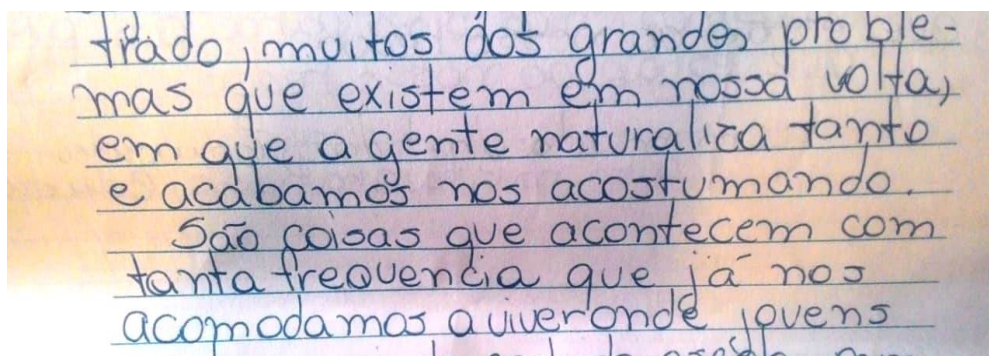 trado, muitos dos grandes proble-
mas que existem em nossa volta,
em que a gente naturaliza tanto
e acabamos nos acostumando.
São coisas que acontecem com
tanta frequencia que já nos
acomodamos a viver onde jovens